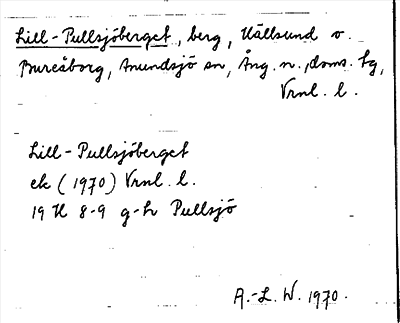 Lill-Pullsjöberget, berg, Källsund o.
Bureåborg, Anundsjö sn, Ång. n., doms. tg,
Vrnl. l.
Lill-Pullsjöberget
ek (1970) Vrnl. l.
19 H 8-9 g-h Pullsjö
A.-L. W. 1970.